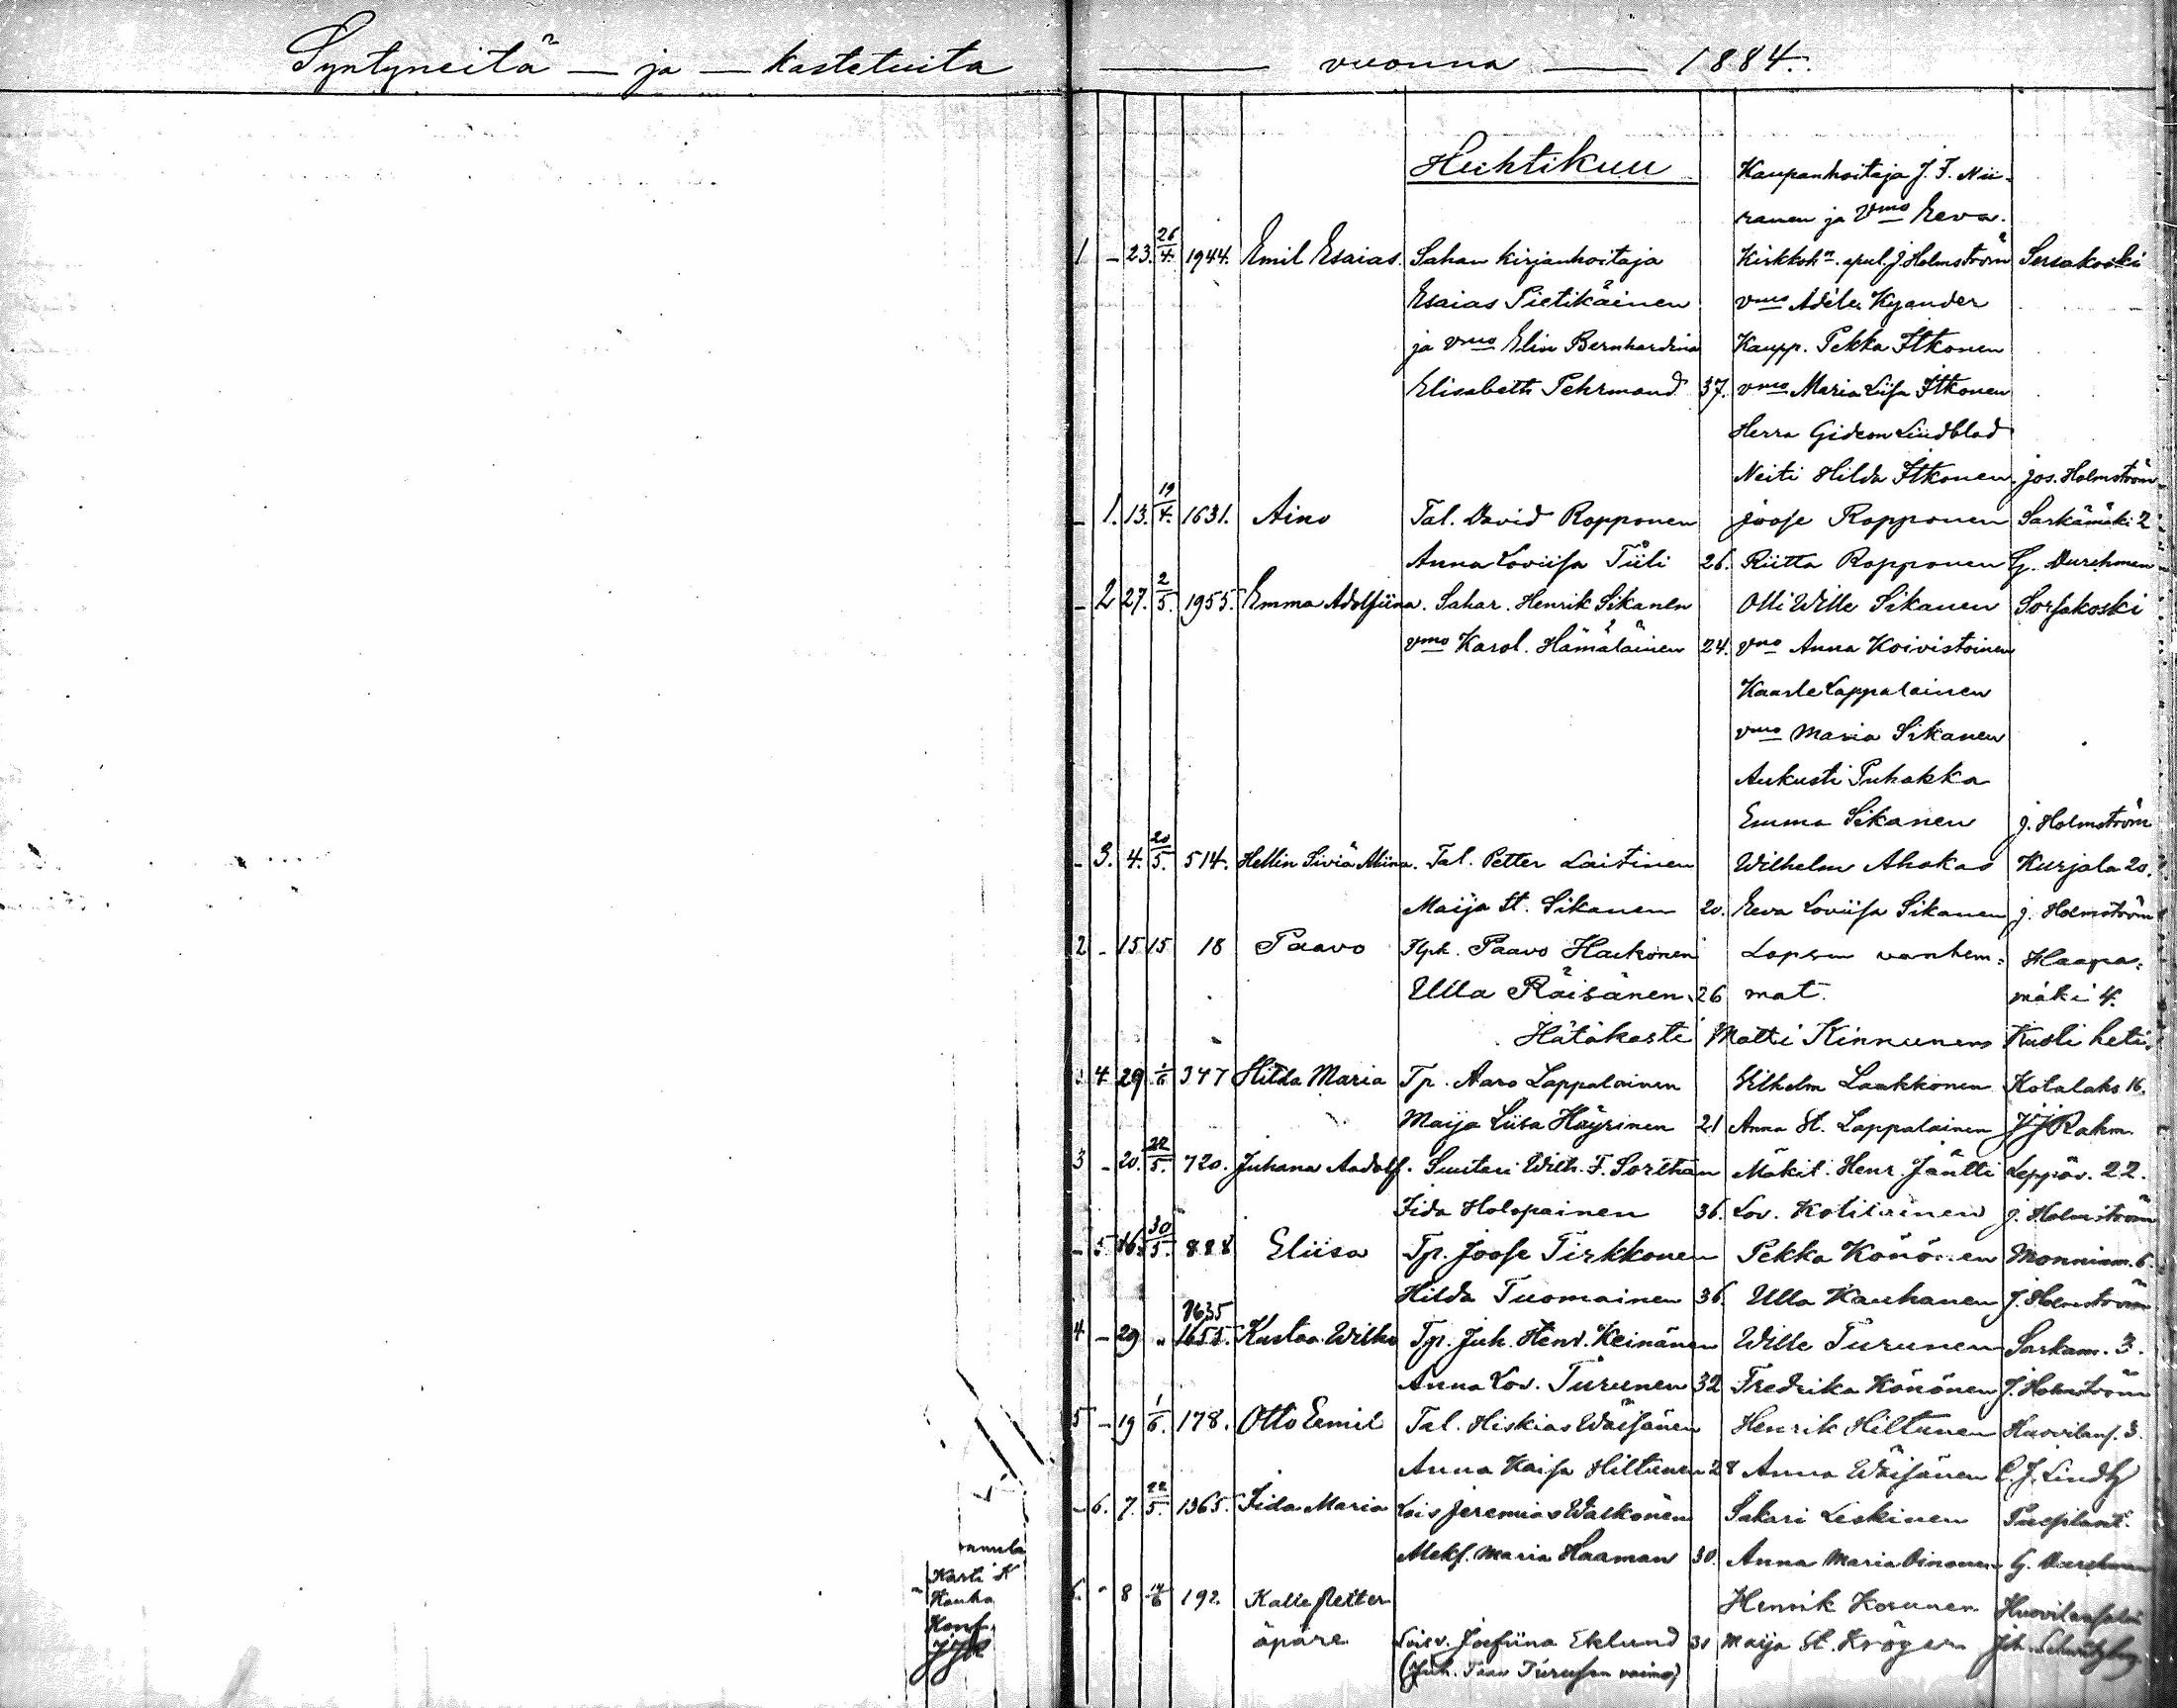 Syntyneitä — ja — kastetuita — vuonna — 1884.
Huhtikuu
Kaupanhoitaja J. F. Nii-
ranen ja Vmo Eeva.
1 - 23. 26/4. 1944. Emil Esaias. Sahan kirjanhoitaja Kirkkoh. apul. J Holmström Sorsakoski
Esaias Pietikäinen vmo Adéle Kyander
ja vmo Elin Bernhardina Kaupp. Pekka Itkonen
Elisabeth Pehrmand 37. vmo Maria Liisa Itkonen
Herra Gideon Lindblad
Neiti Hilda Itkonen. Jos. Holmström
- 1. 13. 19/4. 1631. Aino Tal. David Ropponen Joose Ropponen Sarkämäki 2
Anna Loviisa Tiili 26. Riitta Ropponen G. Durchman
- 2 27. 2/5. 1955. Emma Adolfiina. Sahar. Henrik Sikanen Olli Wille Sikanen Sorsakoski
vmo Karol. Hämäläinen 24. vmo Anna Koivistoinen
Kaarle Lappalainen
vmo Maria Sikanen
Aukusti Puhakka
Emma Sikanen J. Holmström
- 3. 4. 20/5. 514. Hellin Siviä Miina. Tal. Petter Laitinen Wilhelm Ahokas Kurjala 20.
Maija St. Sikanen 20. Eeva Loviisa Sikanen J. Holmström
2 - 15 15 18 Paavo Paavo Haikonen Lapsen vanhem- Haapa-
Ulla Räisänen 26 mat. mäki 4.
Hätäkaste Matti Kinnunen Kuoli heti.
4 29 1/6 347 Hilda Maria Tp. Aaro Lappalainen Vilhelm Laukkonen Kotalaks 16.
Maija Liisa Häyrinen 21 Anna St. Lappalainen JJRahm.
3 - 20. 22/5. 720. Juhana Aadolf. Suutari Wilh. F. Sorthan Mäkil. Henr. Jäntti Leppäv. 22.
Iida Holopainen 36. Lov. Kotilainen J. Holmström
- 5. 16. 30/5. 888 Eliisa Tp. Joose Tirkkonen Pekka Könönen Monninm. 6.
Hilda Tuomainen 36. Ulla Kauhanen J. Holmström
1635
4 - 29 " 1655. Kustaa Wilho Tp. Juh. Henr. Keinänen Wille Turunen Sarkam. 3.
Anna Lov. Turunen 32 Fredrika Könönen J. Holmström
5 - 19 1/6. 178. Otto Eemil Tal. Hiskias Wäisänen Henrik Hiltunen Huovilans. 3.
Anna Kaisa Hiltunen 28 Anna Wäisänen C. J. Lindh
- 6. 7. 22/5. 1365. Iida Maria Lois Jeremias Walkonen Sakari Leskinen
Aleks. Maria Haaman 30. Anna Maria Oinonen G. Durchman
6. - 8 192. Kalle Petter Henrik Korunen Huovilansalmi
äpäre Lois v. Josefiina Eklund 31 Maija St. Kröger
(Juh. Taav Turusen vaimo)
Kasti K
Kauha
JJR